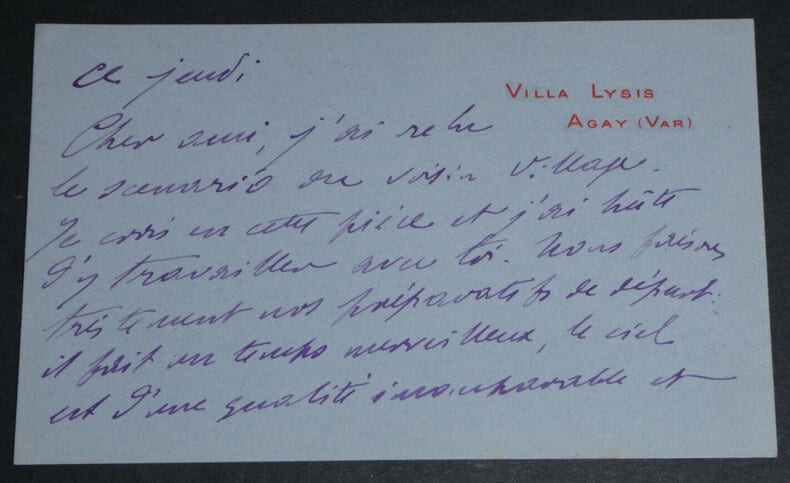 ce jeudi
VILLA LYSIS
AGAY (VAR)
Cher ami, j'ai relu
le scenario du voisin village.
Je crois en cette pièce et j'ai hâte
d'y travailler avec toi. Nous faisons
tristement nos préparatifs de départ:
il fait un temps merveilleux, le ciel
est d'une qualité incomparable et